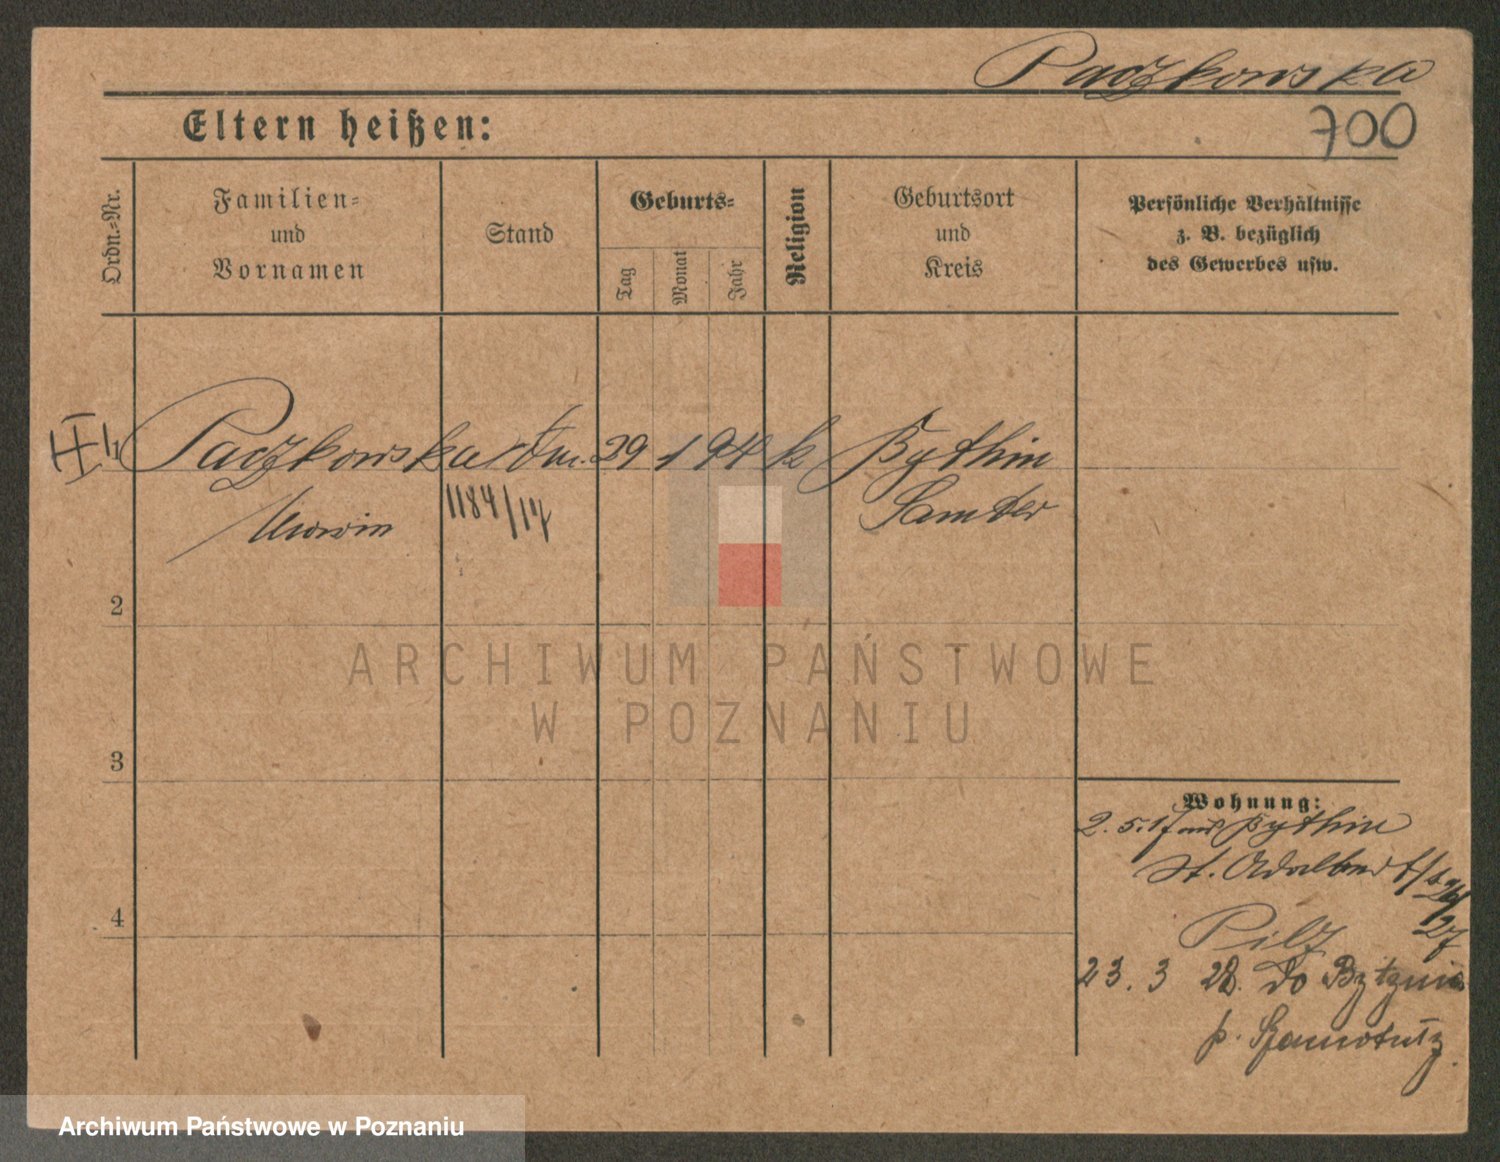 Paczkowska
700
Eltern heißen:
Ordn.-Nr.
Familien-
und
Vornamen
Stand
Geburts-
Tag
Monat
Jahr
Religion
Geburtsort
und
Kreis
Persönliche Verhältnisse
z. B. bezüglich
des Gewerbes usw.
Paczkowska 29 1 94 k Bythin
1184/17 Samter
2
ARCHIWUM PAŃSTWOWE
W POZNANIU
3
Wohnung:
2. 5. 17 aus Bythin
St. Adalbert
4
27
Pilz
23. 3 28. do Bytynia
p. Szamotuły
Archiwum Państwowe w Poznaniu